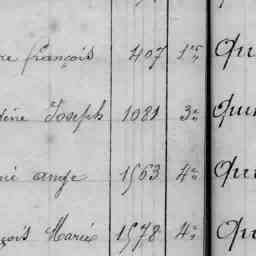 re françois 407 1er Qu
Joseph 1081 3e Qu
ange 1563 4e Qu
çois Marie 1578 4e Qu